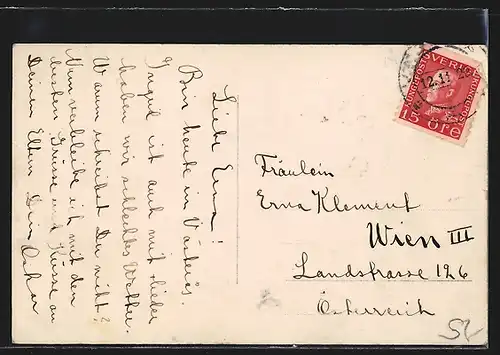 Liebe Erna!
Bin heute in Västerås.
Ingrid ist auch mit. Leider
haben wir schlechtes Wetter.
Wann schreibst Du mit?
Nun verbleibe ich mit den
besten Grüsse und Küsse an
Deinen Eltern Dein Oskar
SVERIGE
12.11
15 ÖRE
Fräulein
Erna Klement
Wien III
Landstrasse 126
Österreich